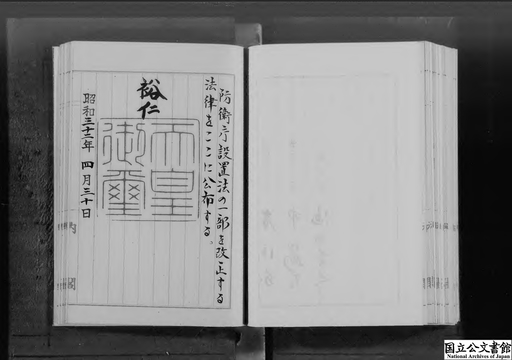 防衛庁設置法の一部を改正する
法律をここに公布する。
裕仁
天皇
御璽
昭和三十二年 四月三十日
内
閣
国立公文書館
National Archives of Japan